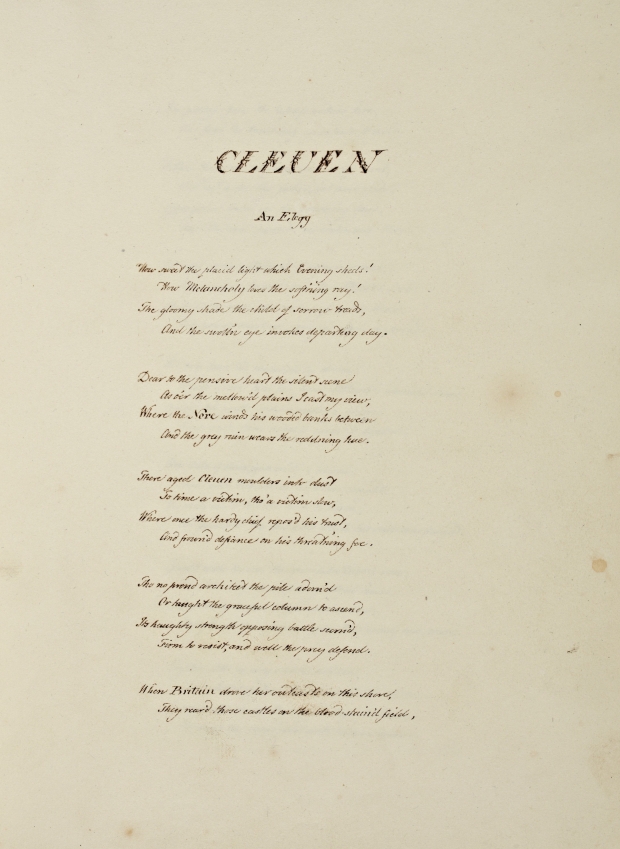 CLEUEN
An Elegy
How sweet the placid light which Evening sheds!
How Melancholy loves the soft'ning ray!
The gloomy shade the child of sorrow treads,
And the swoll'n eye invokes departing day.
Dear to the pensive heart the silent scene
As o'er the mellow'd plains I cast my view,
Where the Nore winds his wooded banks between
And the grey ruin wears the redd'ning hue.
There aged Cleuen moulders into dust
To time a victim, tho' a victim slow,
Where once the hardy chief repos'd his trust,
And frown'd defiance on his threat'ning foe.
Tho no proud architect the pile adorn'd
Or taught the graceful column to ascend,
Its haughty strength opposing battle scorn'd,
Firm to resist, and well the prey defend.
When Britain drove her outcasts on this shore,
They rear'd those castles on the blood stain'd field,